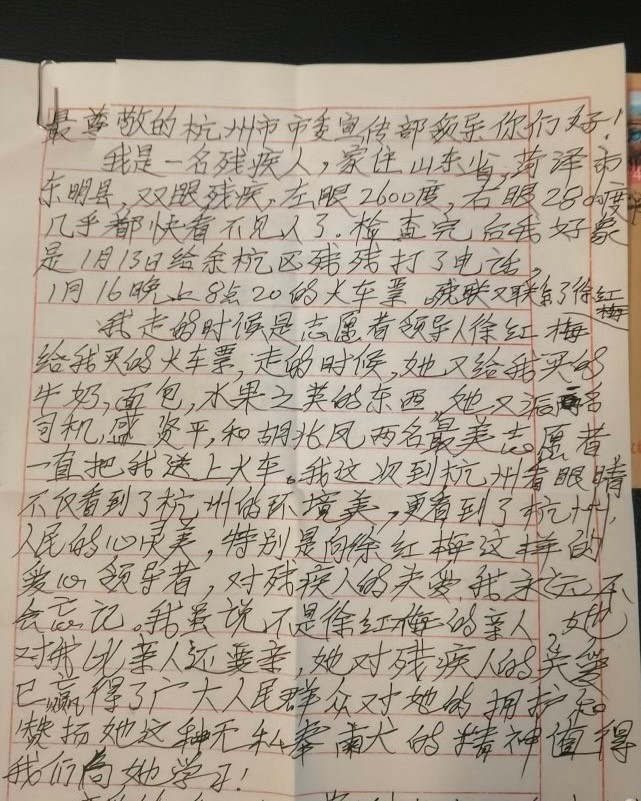 最尊敬的杭州市市委宣传部领导你们好!
我是一名残疾人,家住山东省,菏泽市
东明县,双眼残疾,左眼2600度,右眼2800度
几乎都快看不见人了.检查完后我好象
是1月13日给余杭区残残打了电话,
1月16晚上8点20的火车票.残联又联系了徐红梅
我走的时候是志愿者领导人徐红梅
给我买的火车票,走的时候,她又给我买的
牛奶,面包,水果之类的东西,她又派两名
司机盛贤平,和胡兆凤两名最美志愿者
一直把我送上火车。我这次到杭州看眼睛
不仅看到了杭州的环境美,更看到了杭州,
人民的心灵美,特别是向徐红梅这样的
爱心领导者,对残疾人的关爱,我永远不
会忘记。我虽说不是徐红梅的亲人,她
对我比亲人还要亲,她对残疾人的关爱
已赢得了广大人民群众对她的拥护和
赞扬她这种无私奉南犬的精神值得
我们向她学习!